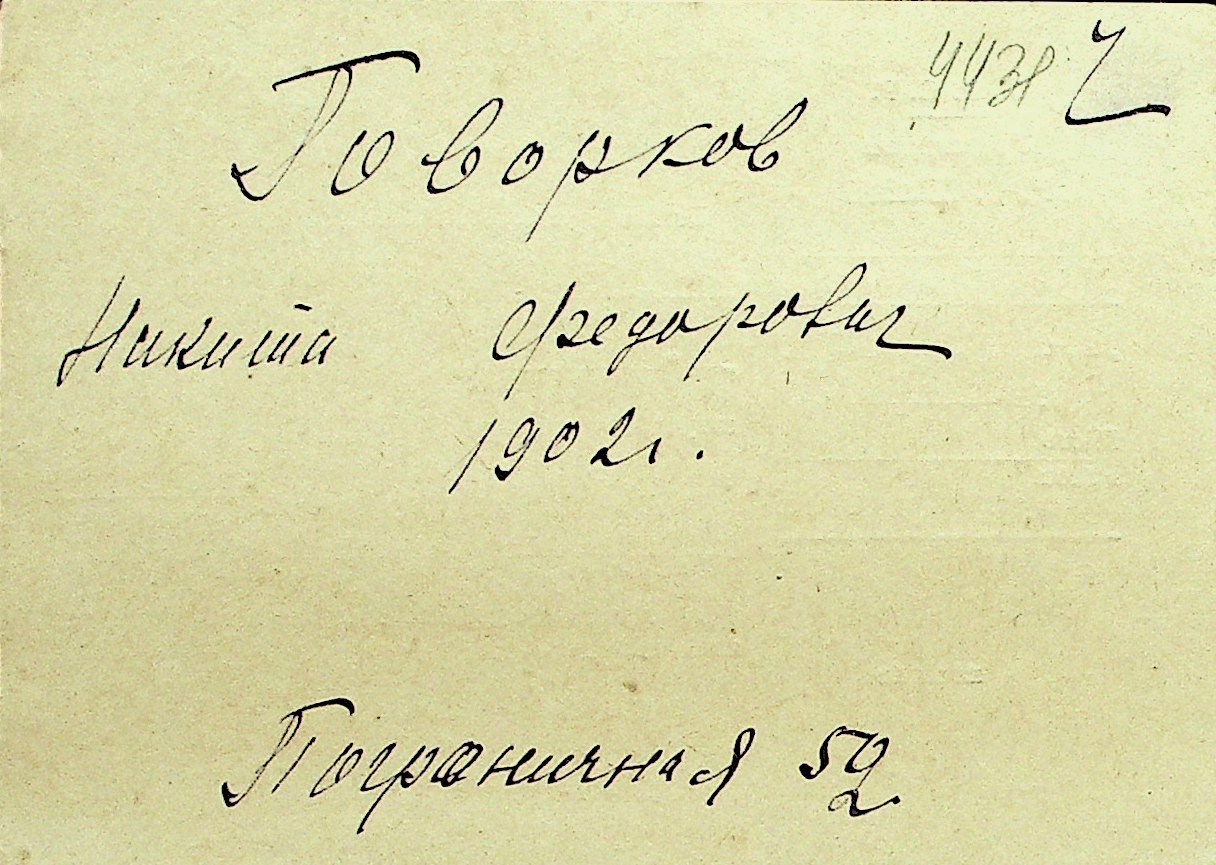 Говорков
Никита Федорович
1902г.
Пограничная 52.